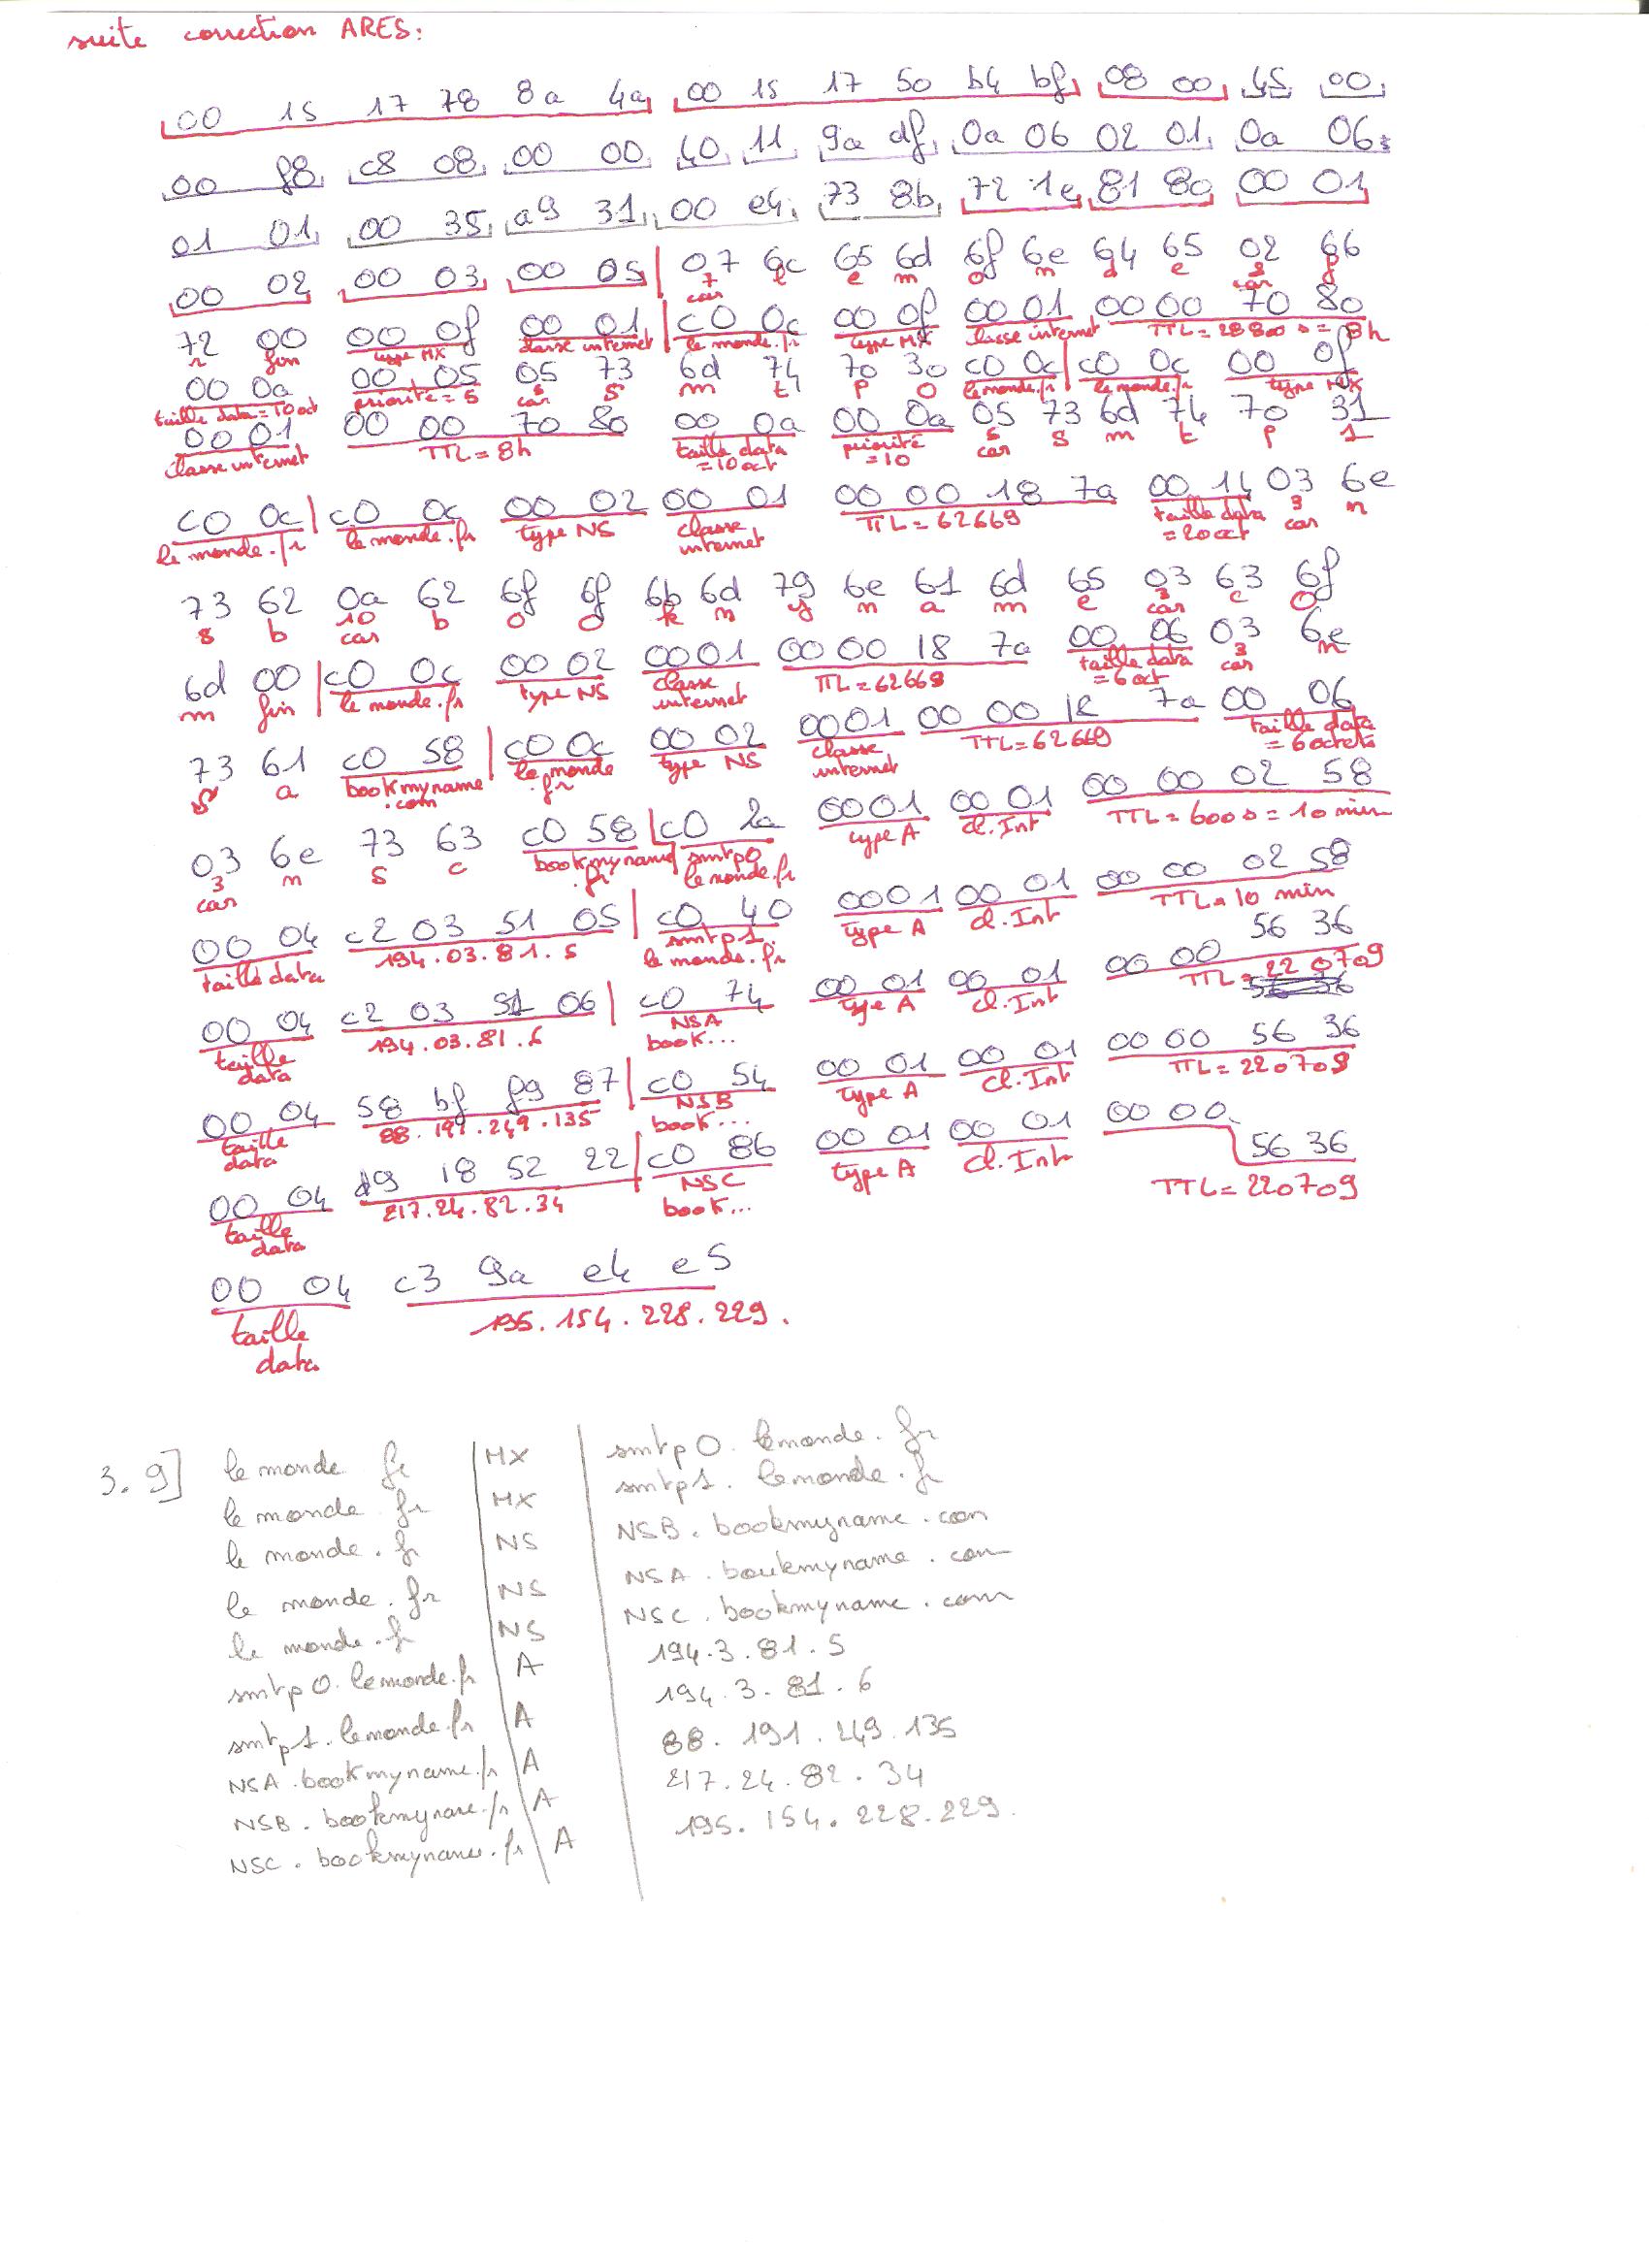 suite correction ARES:
00 15 17 78 8a 4a 00 15 17 50 b4 bf 08 00 45 00
00 f8 c8 08 00 00 40 11 9a df 0a 06 02 01 0a 06
01 01 00 35 a9 31 00 e4 73 8b 72 1e 81 80 00 01
00 02 00 03 00 05 07 6c 65 6d 6f 6e 64 65 02 66
7 car l e m o n d e 2 car f
72 00 00 0f 00 01 c0 0c 00 0f 00 01 00 00 70 80
r fin type MX classe internet le monde.fr type MX classe internet TTL = 28800 s = 8h
00 0a 00 05 05 73 6d 74 70 30 c0 0c c0 0c 00 0f
taille data = 10 oct priorité = 5 5 car s m t p 0 le monde.fr le monde.fr type MX
00 01 00 00 70 80 00 0a 00 0a 05 73 6d 74 70 31
classe internet TTL = 8h taille data = 10 oct priorité = 10 5 car s m t p 1
c0 0c c0 0c 00 02 00 01 00 00 18 7a 00 14 03 6e
le monde.fr le monde.fr type NS classe internet TTL = 62669 taille data = 20 oct 3 car n
73 62 0a 62 6f 6f 6b 6d 79 6e 61 6d 65 03 63 6f
s b 10 car b o o k m y n a m e 3 car c o
6d 00 c0 0c 00 02 00 01 00 00 18 7a 00 06 03 6e
m fin le monde.fr type NS classe internet TTL = 62669 taille data = 6 oct 3 car n
73 61 c0 58 c0 0c 00 02 00 01 00 00 18 7a 00 06
s a bookmyname.com le monde.fr type NS classe internet TTL = 62669 taille data = 6 octets
03 6e 73 63 c0 58 c0 2a 00 01 00 01 00 00 02 58
3 car n s c bookmyname.fr smtp0 le monde.fr type A cl. Int TTL = 600 s = 10 min
00 04 c2 03 51 05 c0 40 00 01 00 01 00 00 02 58
taille data 194.03.81.5 smtp1. le monde.fr type A cl. Int TTL = 10 min
00 04 c2 03 51 06 c0 74 00 01 00 01 00 00 56 36
taille data 194.03.81.6 NSA book... type A cl. Int TTL = 220709
00 04 58 bf f9 87 c0 54 00 01 00 01 00 00 56 36
taille data 88.191.249.135 NSB book... type A cl. Int TTL = 220709
00 04 d9 18 52 22 c0 86 00 01 00 01 00 00 56 36
taille data 217.24.82.34 NSC book... type A cl. Int TTL = 220709
00 04 c3 9a e4 e5
taille data 195.154.228.229.
3.9] le monde fr MX smtp0. lemonde.fr
le monde fr MX smtp1. lemonde.fr
le monde.fr NS NSB. bookmyname.com
le monde.fr NS NSA. bookmyname.com
le monde.fr NS NSC. bookmyname.com
smtp0. lemonde.fr A 194.3.81.5
smtp1. lemonde.fr A 194.3.81.6
NSA.bookmyname.fr A 88.191.249.135
NSB.bookmyname.fr A 217.24.82.34
NSC.bookmyname.fr A 195.154.228.229.